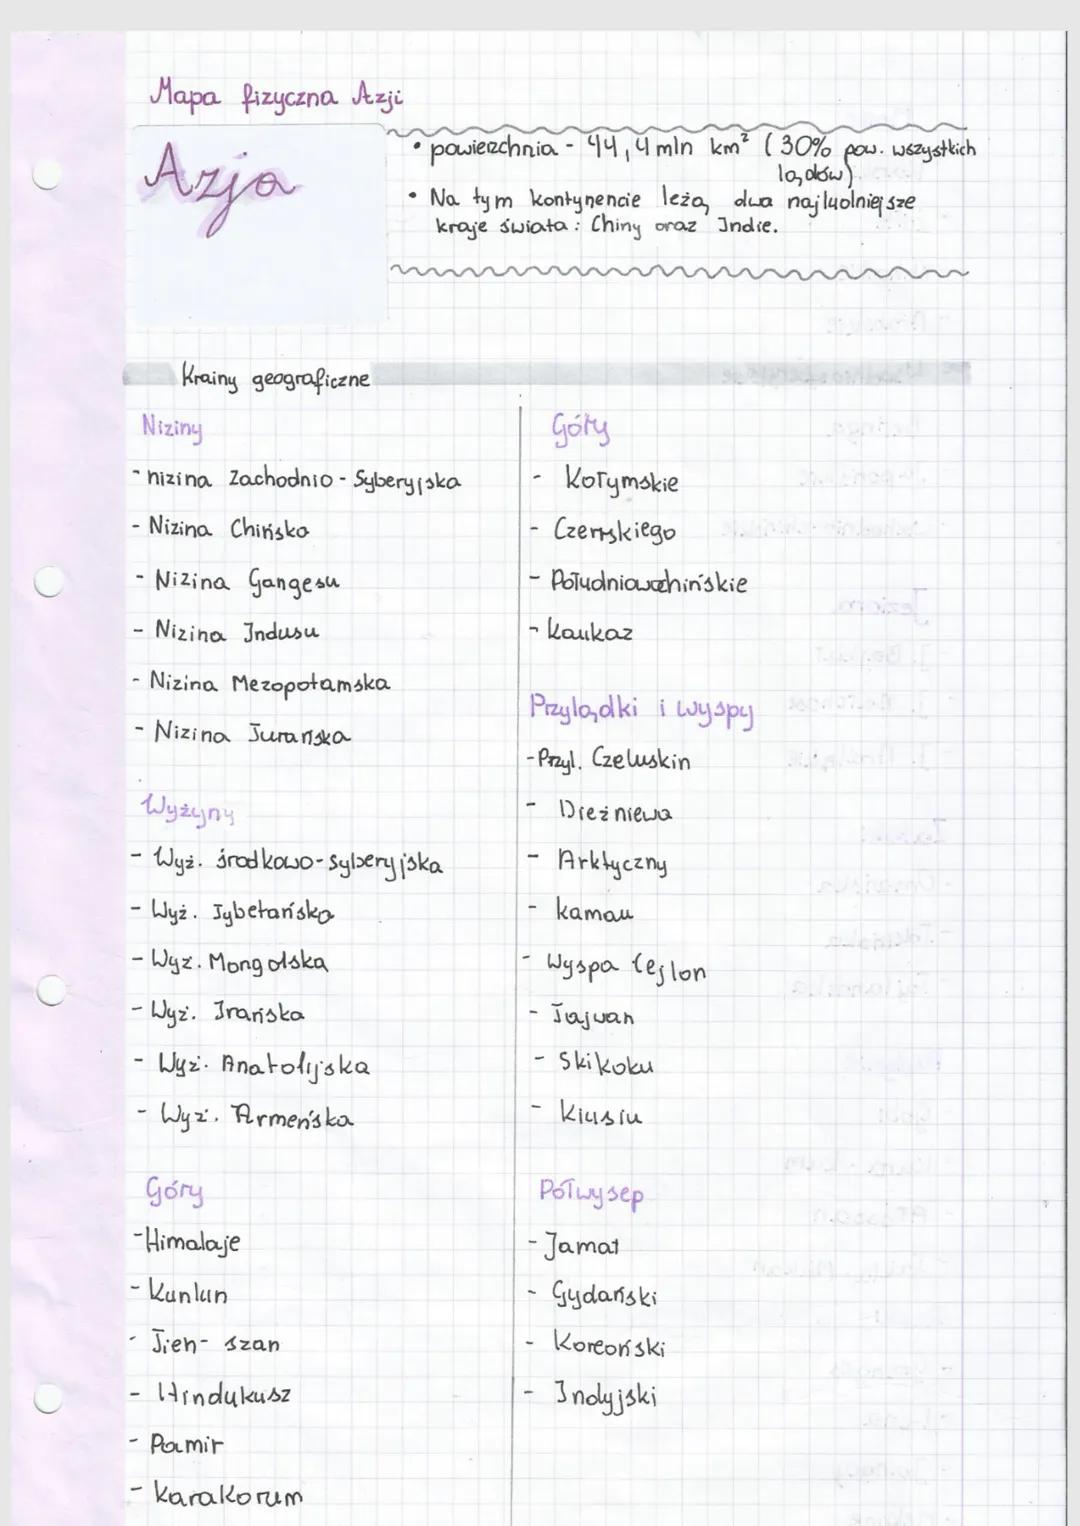 Mapa fizyczna Azji
Azja
• powierzchnia - 44,4 mln km² (30% pow. wszystkich
lądów)
• Na tym kontynencie leżą dwa najludniejsze
kraje świata: Chiny oraz Indie.
Krainy geograficzne
Niziny
- nizina Zachodnio - Syberyjska
- Nizina Chińska
- Nizina Gangesu
- Nizina Indusu
- Nizina Mezopotamska
- Nizina Turańska
Wyżyny
- Wyż. środkowo-syberyjska
- Wyż. Tybetańska
- Wyż. Mongolska
- Wyż. Irańska
- Wyż. Anatolijska
- Wyż. Armeńska
Góry
- Himalaje
- Kunlun
- Tien- szan
- Hindukusz
- Pamir
- Karakorum
Góry
- Kołymskie
- Czerskiego
- Południowochińskie
- Kaukaz
Przylądki i wyspy
- Przyl. Czeluskin
- Dieżniewa
- Arktyczny
- kamau
- Wyspa Cejlon
- Tajwan
- Skikoku
- Kiusiu
Półwysep
- Jamał
- Gydański
- Koreański
- Indyjski